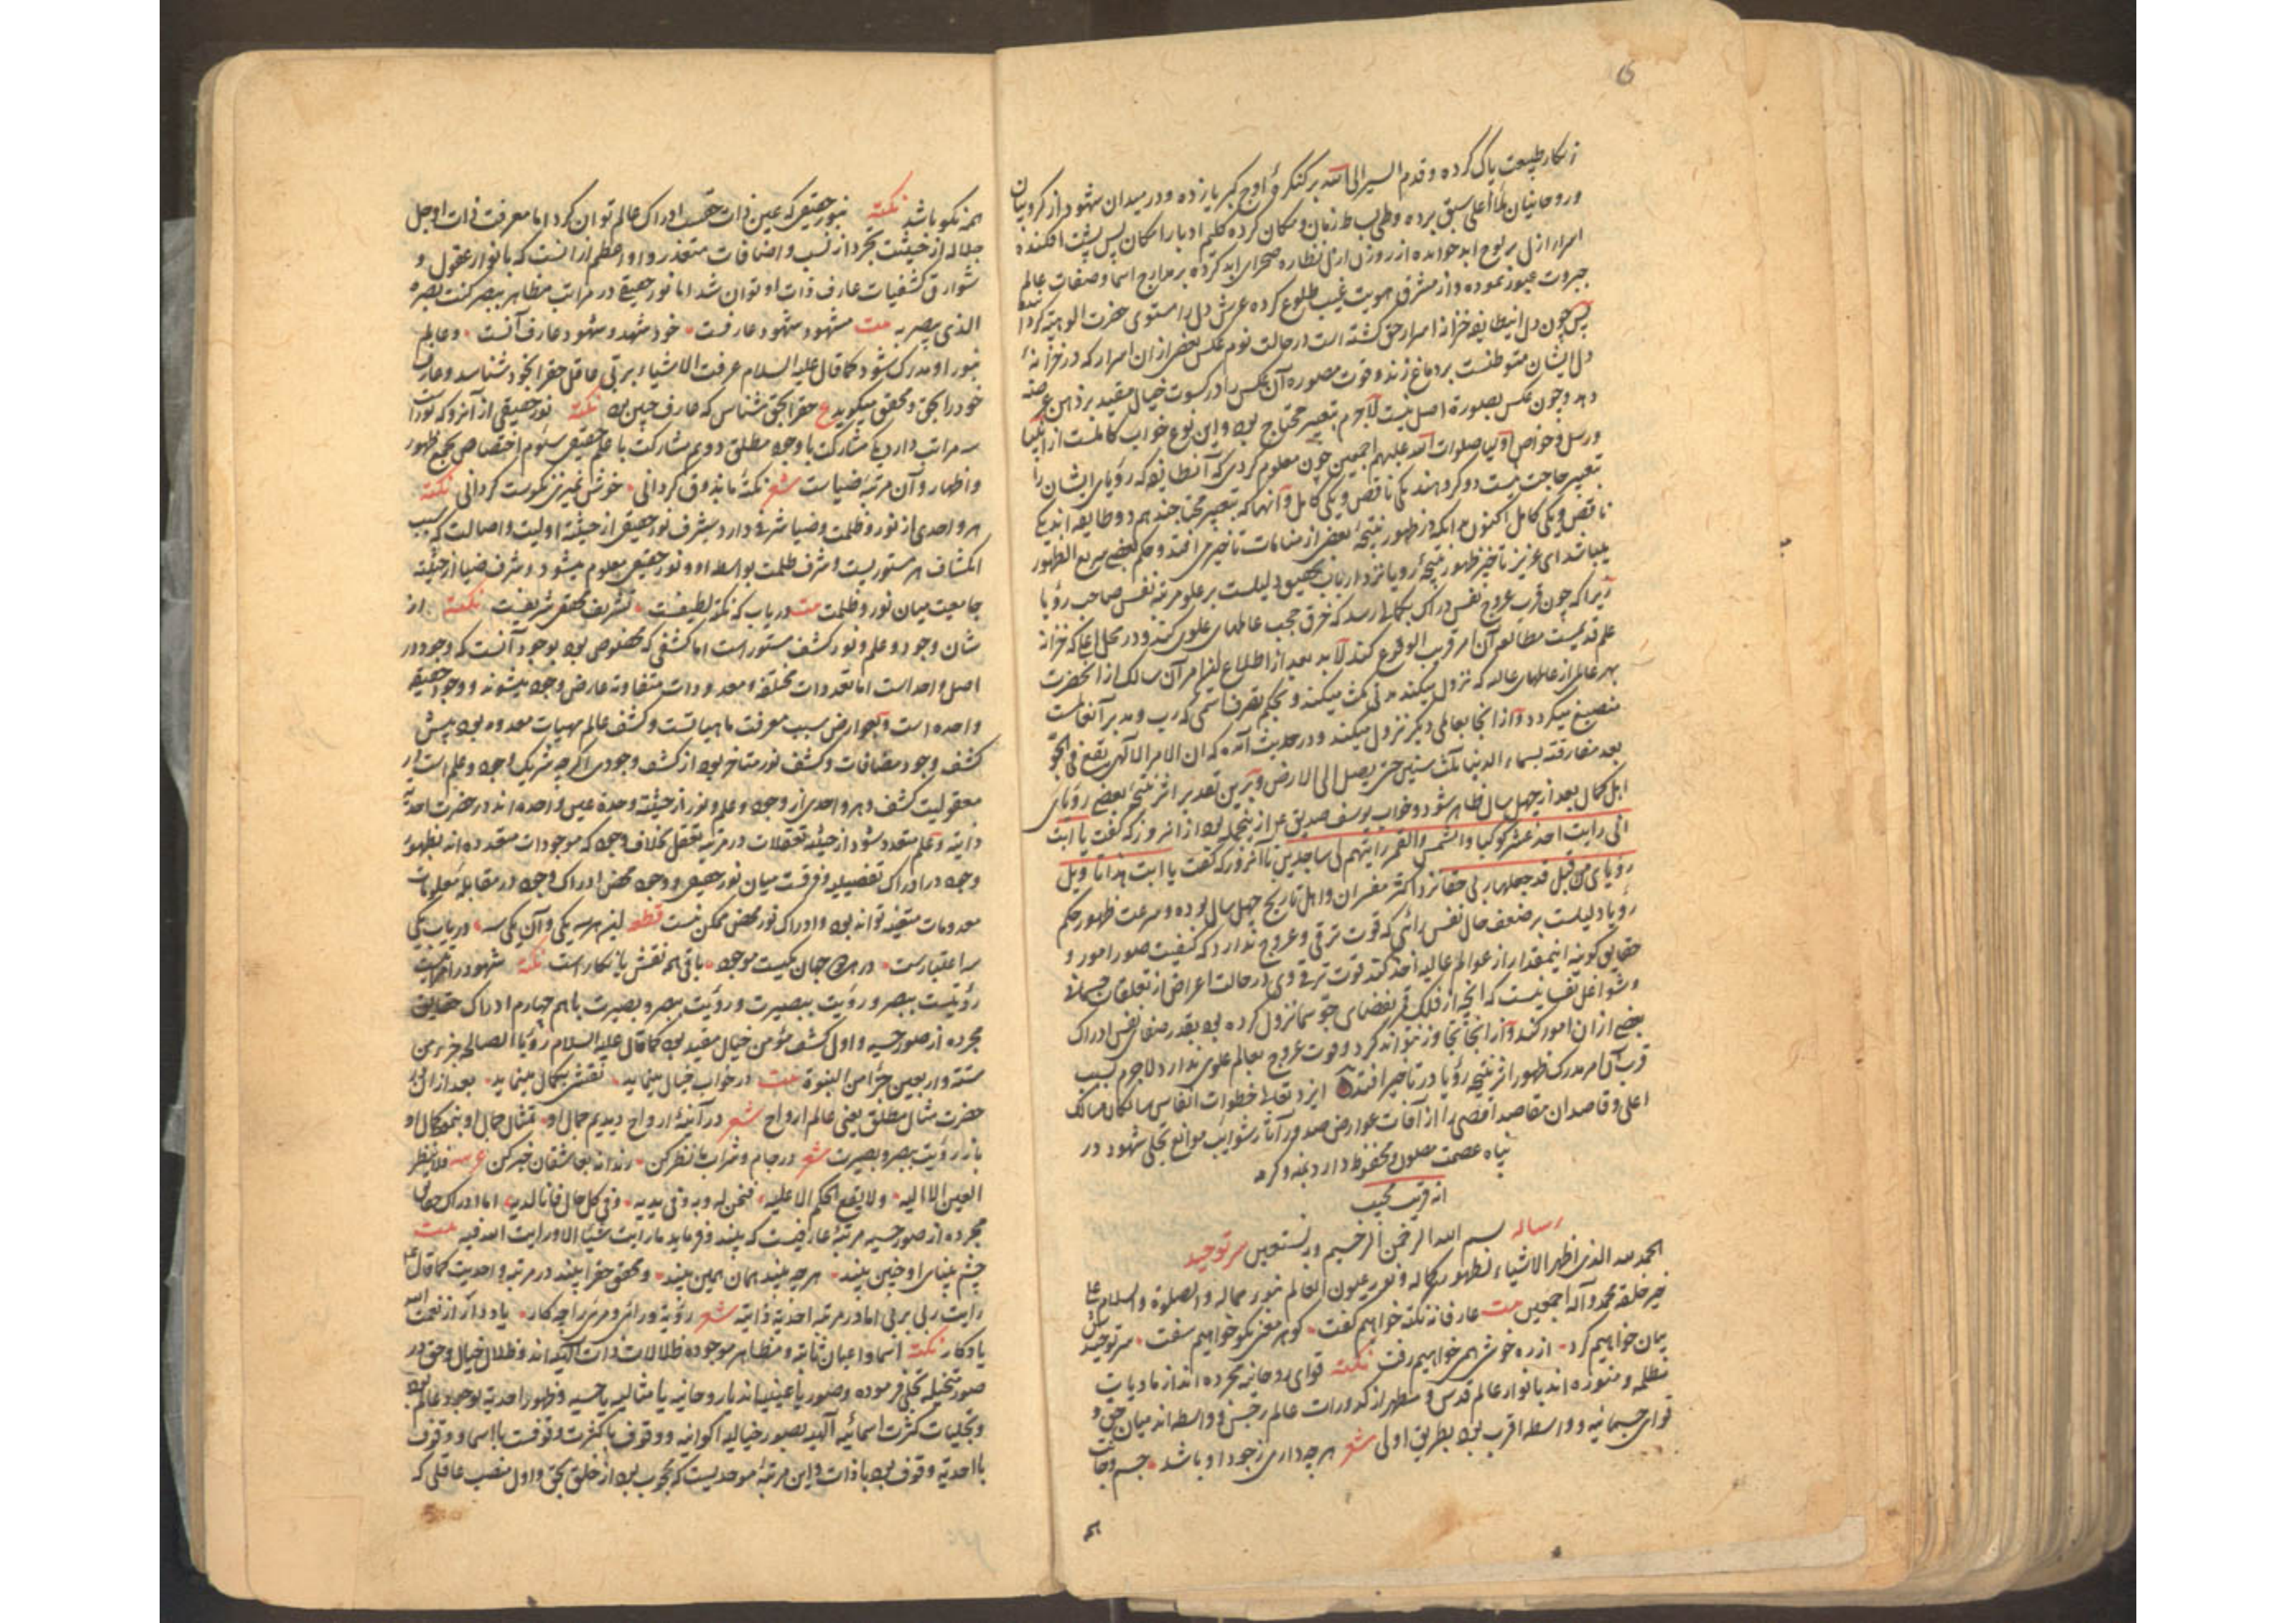 ز نکار طبیعت پاک کرده و قدم السیر الی الله بر کنکرهٔ اوج کبریا زده و در میدان شهود از کروبیان
و روحانیان ملأ اعلی سبق برده و طی بساط زمان و مکان کرده کلیم ادبار امکان پس پشت افکنده
اسرار ازل بر لوح ابد خوانده از روزن ازل نظاره صحرای ابد کرده بر مدارج اسما و صفات عالم
جبروت عبور نموده و از مشرق هویت غیب طلوع کرده عرش دل را مستوی حضرت الوهیة کردانیده
پس چون دل این طایفه خزانه اسرار حق کشته است در حالت نوم عکس بعضی از ان اسرار که در خزانهٔ
دل ایشان متوطنست بر دماغ زند و قوت مصوره آن عکس را در کسوت خیال مقید بر ذهن عرضه
دهد و چون عکس بصورة اصل نیست لاجرم بتعبیر محتاج بود و این نوع خواب کاملانست از انبیا
و رسل و خواص اولیا صلوات الله علیهم اجمعین چون معلوم کردی که آن طایفه که رؤیای ایشان را
تعبیر حاجت نیست دو کروهند یکی ناقص و یکی کامل و آنهاکه بتعبیر محتاجند هم دو طایفه اند یکی
ناقص و یکی کامل اکنون بدانکه در ظهور نتیجهٔ بعضی از منامات تاخیر می افتد و حکم بعضی سریع الظهور
میباشد ای عزیز تاخیر ظهور نتیجهٔ رویا نزد ارباب تحقیق دلیلست بر علو مرتبه نفس صاحب رؤیا
زیرا که چون قرب عروج نفس دراک بکمالی رسد که خرق حجب عالمهای علوی کند و در محل اعلی که خزانه
علم قدیمست مطالعه آن امر قریب الوقوع کند لابد بعد از اطلاع این امر آن سالک از آنحضرت
بهر عالمی از عالمهای عالیه که نزول میکند مدتی مکث میکند و بحکم تصرفاتی که رب و مدبر آنعالمست
منصبغ میکردد و از انجا بعالمی دیکر نزول میکند و در حدیث آمده که ان الامر الالهی یبقی فی الجو
بعد مفارقته لسماء الدنیا ثلث سنین حتی یصل الی الارض و برین تقدیر اثر نتیجهٔ بعضی رؤیای
اهل کمال بعد از چهل سال ظاهر شود و خواب یوسف صدیق ع از ینجمله بود از انروز که کفت یا ابت
انی رایت احد عشر کوکبا و الشمس و القمر رایتهم لی ساجدین تا آنروز که کفت یا ابت هذا تاویل
رؤیای من قبل قد جعلها ربی حقا نزد اکثر مفسران و اهل تاریخ چهل سال بوده و سرعت ظهور حکم
رویا دلیلست بر ضعف حال نفس رائی که قوت ترقی و عروج ندارد که کیفیت صور امور و
حقایق کونیه اینمقدار از عوالم عالیه اخذ کند قوت ترقی وی در حالت اعراض از تعلقات جسمانی
و شواغل نفسانیست که انچه از فلک قمر بفضای جو سما نزول کرده بود بقدر صفای نفس ادراک
بعضی از ان امور کند و از انجا تجاوز نتواند کرد و قوت عروج بعالم علوی ندارد لاجرم بسبب
قرب آن امر مدرک ظهور اثر نتیجه رؤیا در تاخیر افتد ایزد تعالی خطوات انفاس سالکان مسالک
اعلی و قاصدان مقاصد اقصی را از آفات عوارض صدور آثار شوایب موانع تجلی شهود در
پناه عصمت مصون و محفوظ دارد بمنه و کرمه
انه قریب مجیب
رساله بسم الله الرحمن الرحیم وبه نستعین سر توحید
الحمد لله الذی اظهر الاشیاء بظهور کماله و نور عیون العالم بنور جماله و الصلوة و السلام علی
خیر خلقه محمد و آله اجمعین بیت عارفانه نکته خواهیم کفت کوهر معنی نکو خواهیم سفت سر توحیدش
بیان خواهیم کرد از ره خوش همی خواهیم رفت نکته قوای روحانیه مجرده اند از مادیات
مظلمه و منوره اند بانوار عالم قدس و مطهر از کدورات عالم رجس و واسطه اند میان حق و
قوای جسمانیه و واسطه اقرب بود بطریق اولی شعر هرچه داری ز جود او باشد جسم و جانت
همه
همه نکو باشد نکته بنور حقیقی که عین ذات حقست ادراک عالم توان کرد اما معرفت ذات او جل
جلاله از حیثیت تجرد از نسب و اضافات متعذر و او اعظم از انست که بانوار عقول و
شوارق کشفیات عارف ذات او توان شد اما نور حقیقی در مراتب مظاهر ببصر کنت بصره
الذی یبصر به بیت مشهود شهود عارفست خود شهد و شهود عارف آنست و عالم
بنور او مدرک شود کما قال علیه السلام عرفت الاشیاء بربی عاقل حق را بخود شناسد و عارف
خود را بحق و محقق میکوید ع حق را بحق شناس که عارف چنین بود نکته نور حقیقی از آنرو که نور است
سه مراتب دارد یکی مشارکت با وجود مطلق دویم مشارکت با علم حقیقی سئوم اختصاص بجمع ظهور
و اظهار و آن مرتبهٔ ضیاست شعر نکتهٔ ما بذوق کردانی خوش عزیزی نکوست کردانی نکته
هر واحدی از نور و ظلمت و ضیا شرفی دارد شرف نور حقیقی از حیثیة اولیت و اصالت که سبب
انکشاف هر مستوریست و شرف ظلمت بواسطه او و نور حقیقی معلوم میشود و شرف ضیا از حیثیة
جامعیت میان نور و ظلمت بیت دریاب که نکتهٔ لطیفست تشریف محقق شریفست نکته از
شان وجود و علم و نور کشف مستور است اما کشفی که مخصوص بود بوجود آنست که وجود در
اصل واحد است اما تعددات مختلفه و معدودات متفاوته عارض وجود میشوند و وجود حقیقة
واحده است و بعوارض سبب معرفت ماهیاتست و کشف عالم مهیات معدوده بود پیش
کشف وجود مضافات و کشف نور متاخر بود از کشف وجودی اکرچه شریک وجود و علم است در
معقولیت کشف و هر واحدی از وجود و علم و نور از حیثیة وحدة عین واحده اند در حضرت احدیة
ذاتیه و علم متعدد شود از حیثیة تعقلات در مرتبه تعقل بخلاف وجود که موجودات متعدده اند بظهور
وجود در ادراک تفصیلیه و فرقست میان نور حقیقی و وجود محض ادراک وجود در مقابله معلومات
معدومات متعینه تواند بود و ادراک نور محض ممکن نیست قطعه این هر سه یکی و آن یکی سه دریاب یکی
سه اعتبارست در هر دو جهان یکیست موجود باقی همه نقش یا نکار است نکته شهود در اقسامیست
رؤیتیست ببصر و رؤیت ببصیرت و رؤیت ببصر و بصیرت باهم چهارم ادراک حقایق
مجرده از صور حسیه و اول کشف مؤمن خیال مقید بود کما قال علیه السلام رؤیا الصالحه جزء من
ستة و اربعین جزأ من النبوة بیت در خواب خیال مینماید نقشی بکمال مینماید بعد از ان در
حضرت مثال مطلق یعنی عالم ارواح شعر در آینهٔ ارواح دیدیم جمال او تمثال جمال او بنمود کمال او
باز رؤیت ببصر و بصیرت شعر در جام و شراب ما نظر کن رندانه بعاشقان خبر کن عربیه فلا ینظر
العین الا الیه ولا یقع الحکم الا علیه فنحن له و به و فی یدیه و فی کل حال فانا لدیه اما ادراک حقایق
مجرده از صور حسیه مرتبهٔ عارفیست که بیند و فرماید ما رایت شیئا الا و رایت الله فیه بیت
چشم بینای او چنین بیند هرچه بیند همان همین بیند و محقق حق را بیند در مرتبه واحدیت کما قال ع
رایت ربی بربی اما در مرتبه احدیة ذاتیه شعر رؤیة و رائی و مرئی را چه کار یاد دار از نعمت الله
یادکار نکته اسما و اعیان ثابته و مظاهر موجوده ظلالات ذات الهیه اند و ظلال خیال و حق در
صور متخیله تجلی فرموده و صور یا عینیه اند یا روحانیه یا مثالیه یا حسیه و ظهور احدیة بوجود عالم بود
و تجلیات کثرت اسمائیه الهیه بصور خیالیه اکوانیه و وقوف با کثرت وقوفست با اسما و وقوف
با احدیة وقوف بود با ذات و این مرتبهٔ موحدیست که محجوب بود از خلق بحق و اول منصب عاقلی که